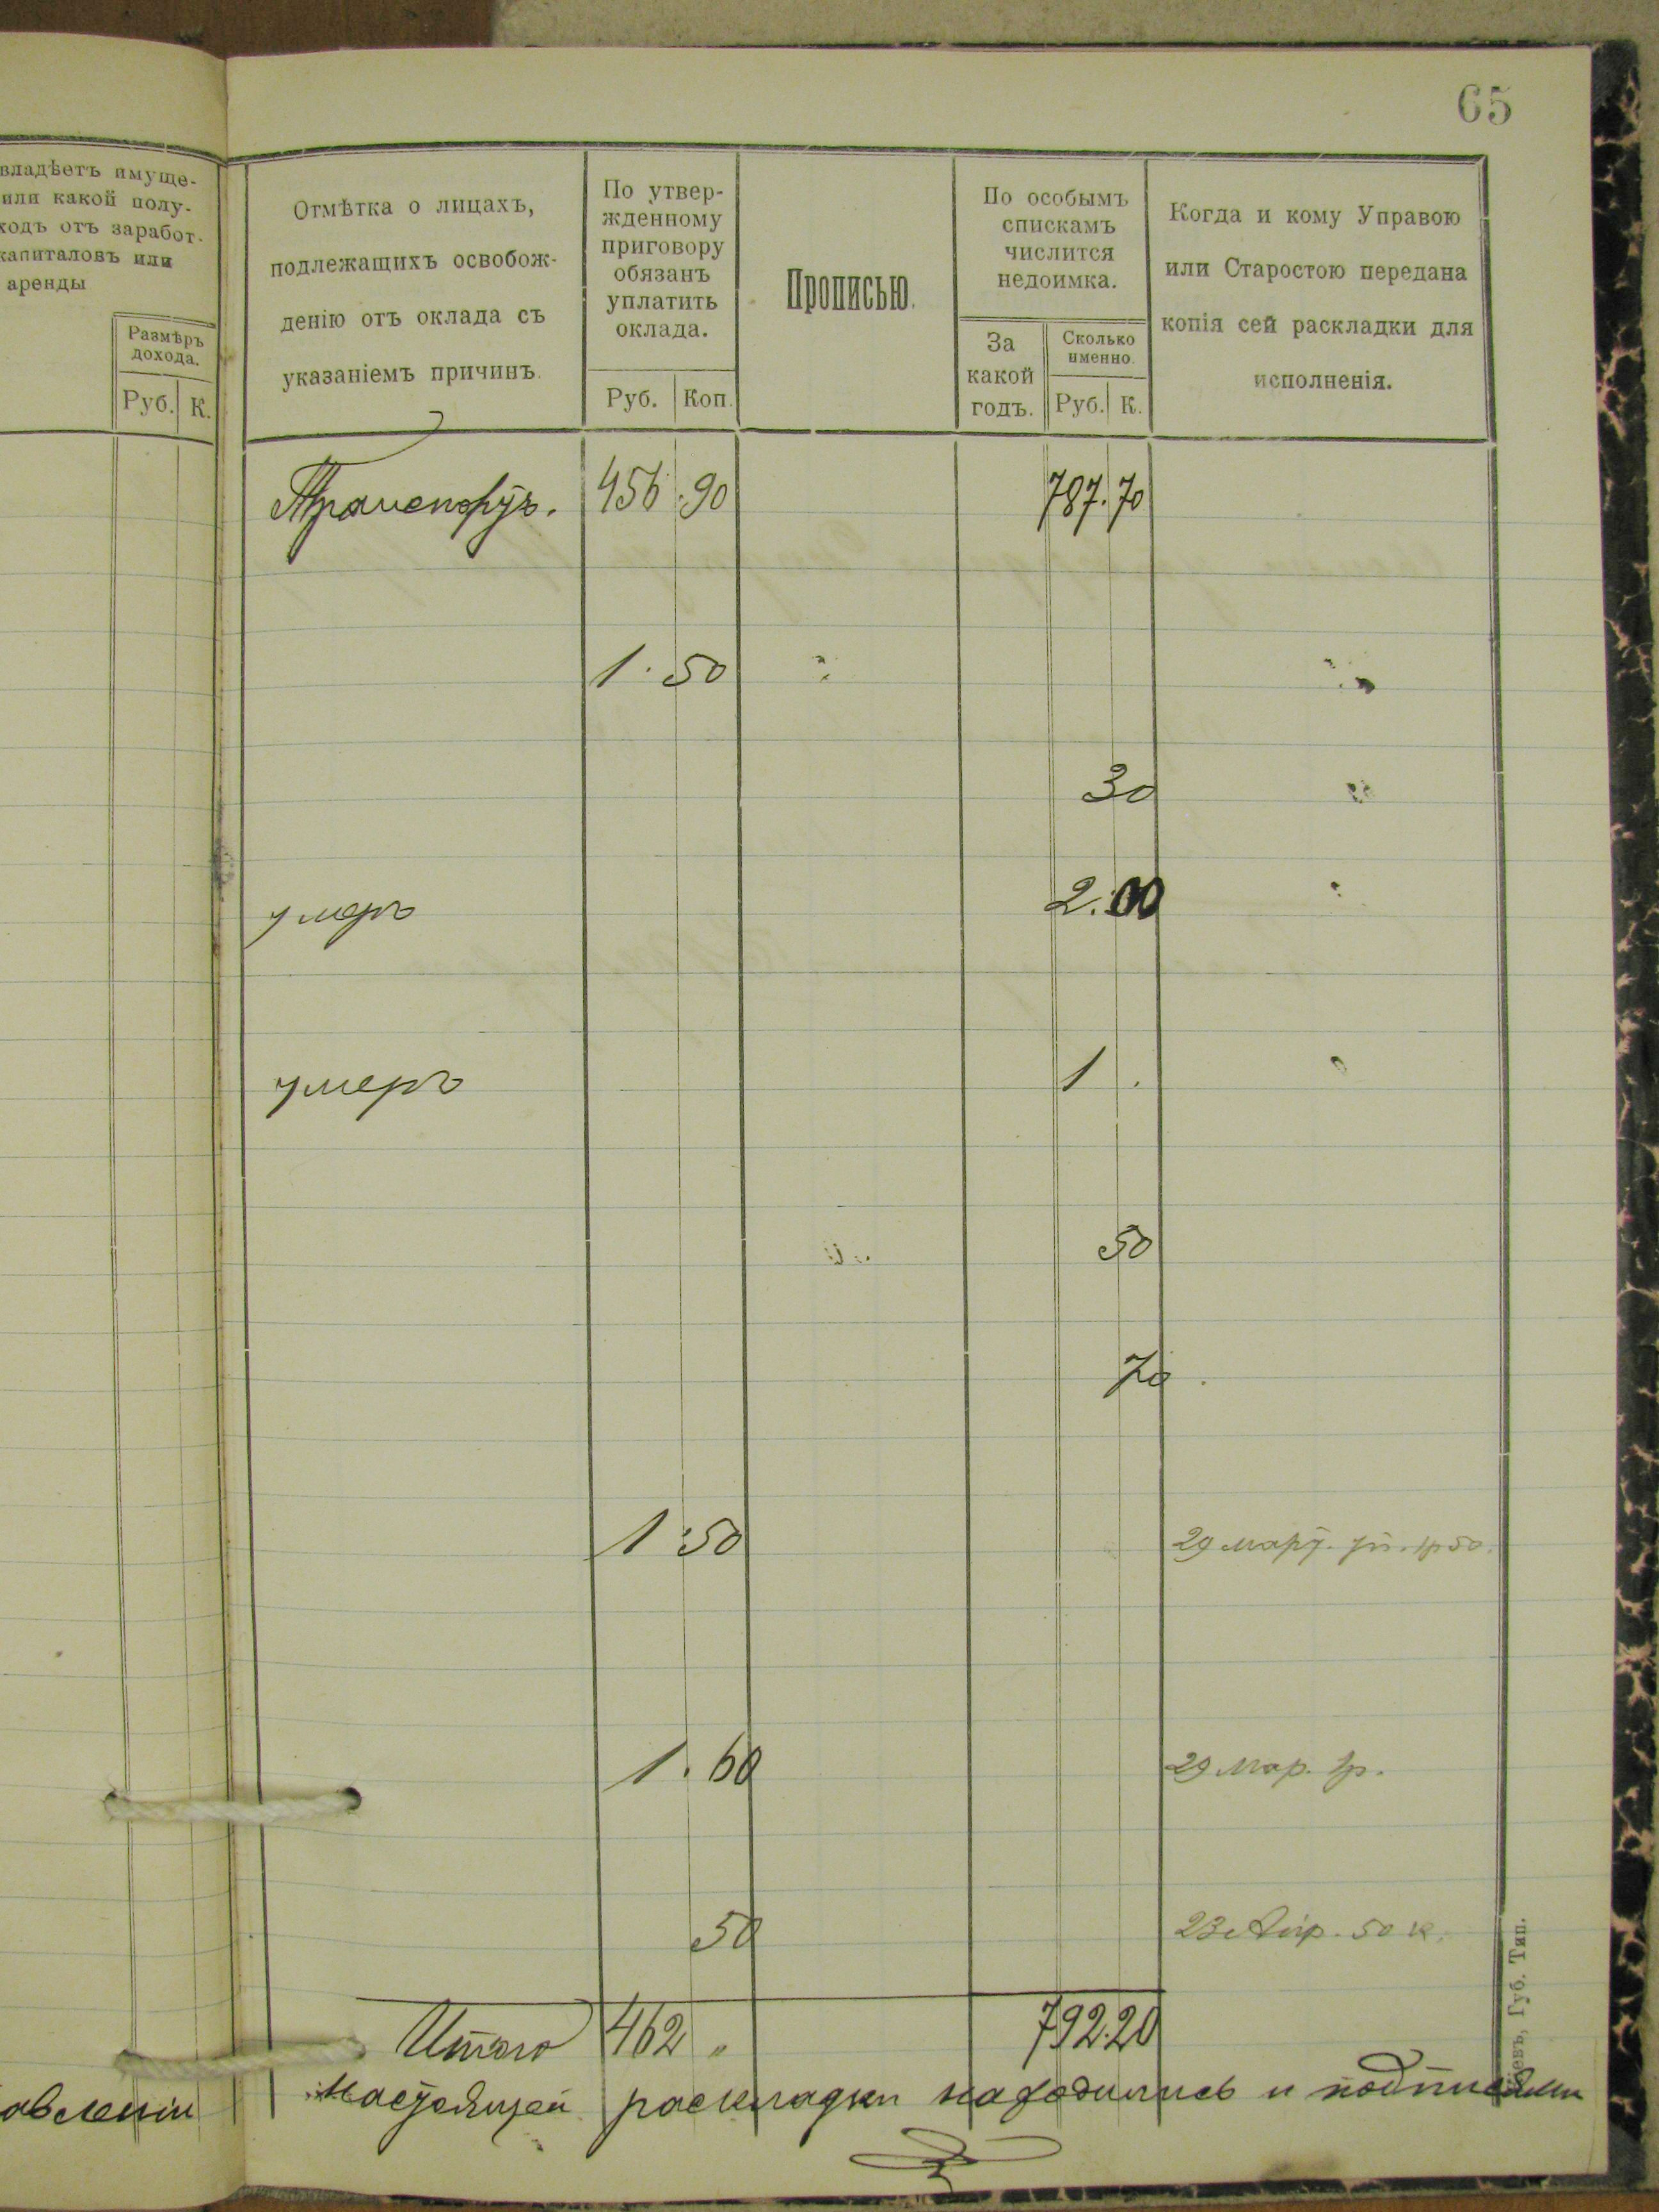 65
владѣетъ имуще-
или какой полу-
ходъ отъ заработ-
капиталовъ или
аренды
Размѣръ
дохода.
Руб. К.
Отмѣтка о лицахъ,
подлежащихъ освобож-
денію отъ оклада съ
указаніемъ причинъ.
По утвер-
жденному
приговору
обязанъ
уплатить
оклада.
Руб. Коп.
Прописью.
По особымъ
спискамъ
числится
недоимка.
За
какой
годъ.
Сколько
именно.
Руб. К.
Когда и кому Управою
или Старостою передана
копія сей раскладки для
исполненія.
Транспортъ. 456.90 787.70
1.50
30
умеръ 2.00
умеръ 1 .
50
70
1.50 29 март. уп. 1р 50.
1.60 29 Мар. 1р.
50 23 Апр. 50 к.
Итого 462 „ 792.20
авленіи настоящей раскладки находились и подписали
евъ, Губ. Тип.